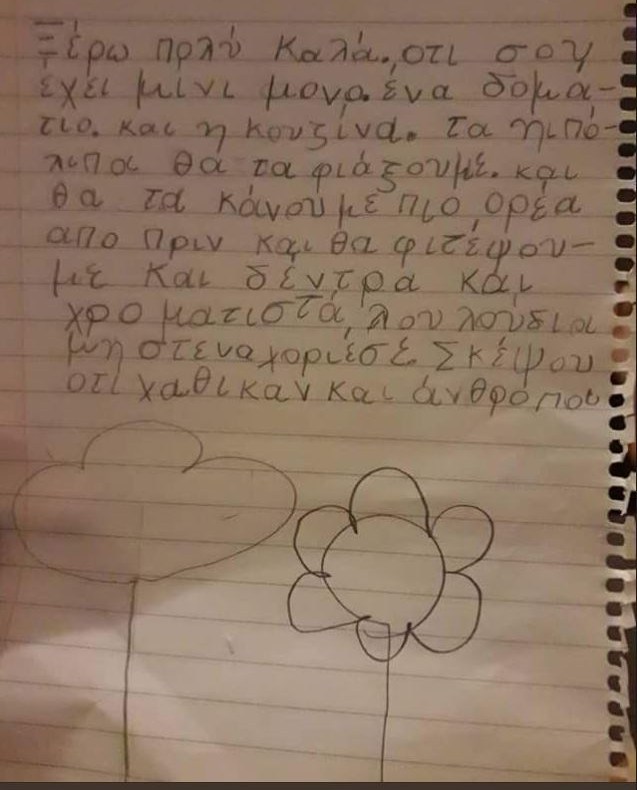 Ξέρω πολύ καλά. οτι σου
έχει μίνι μονο. ένα δομα-
τιο. και η κουζίνα. τα ηιπό-
λιπα θα τα φιάξουμέ. και
θα τα κάνουμε πιο ορέα
απο πριν και θα φιτέψου-
με και δέντρα και
χρο ματιστά, λουλούδια
μη στεναχοριέσε. Σκέψου
οτι χαθικαν και άνθρόποι